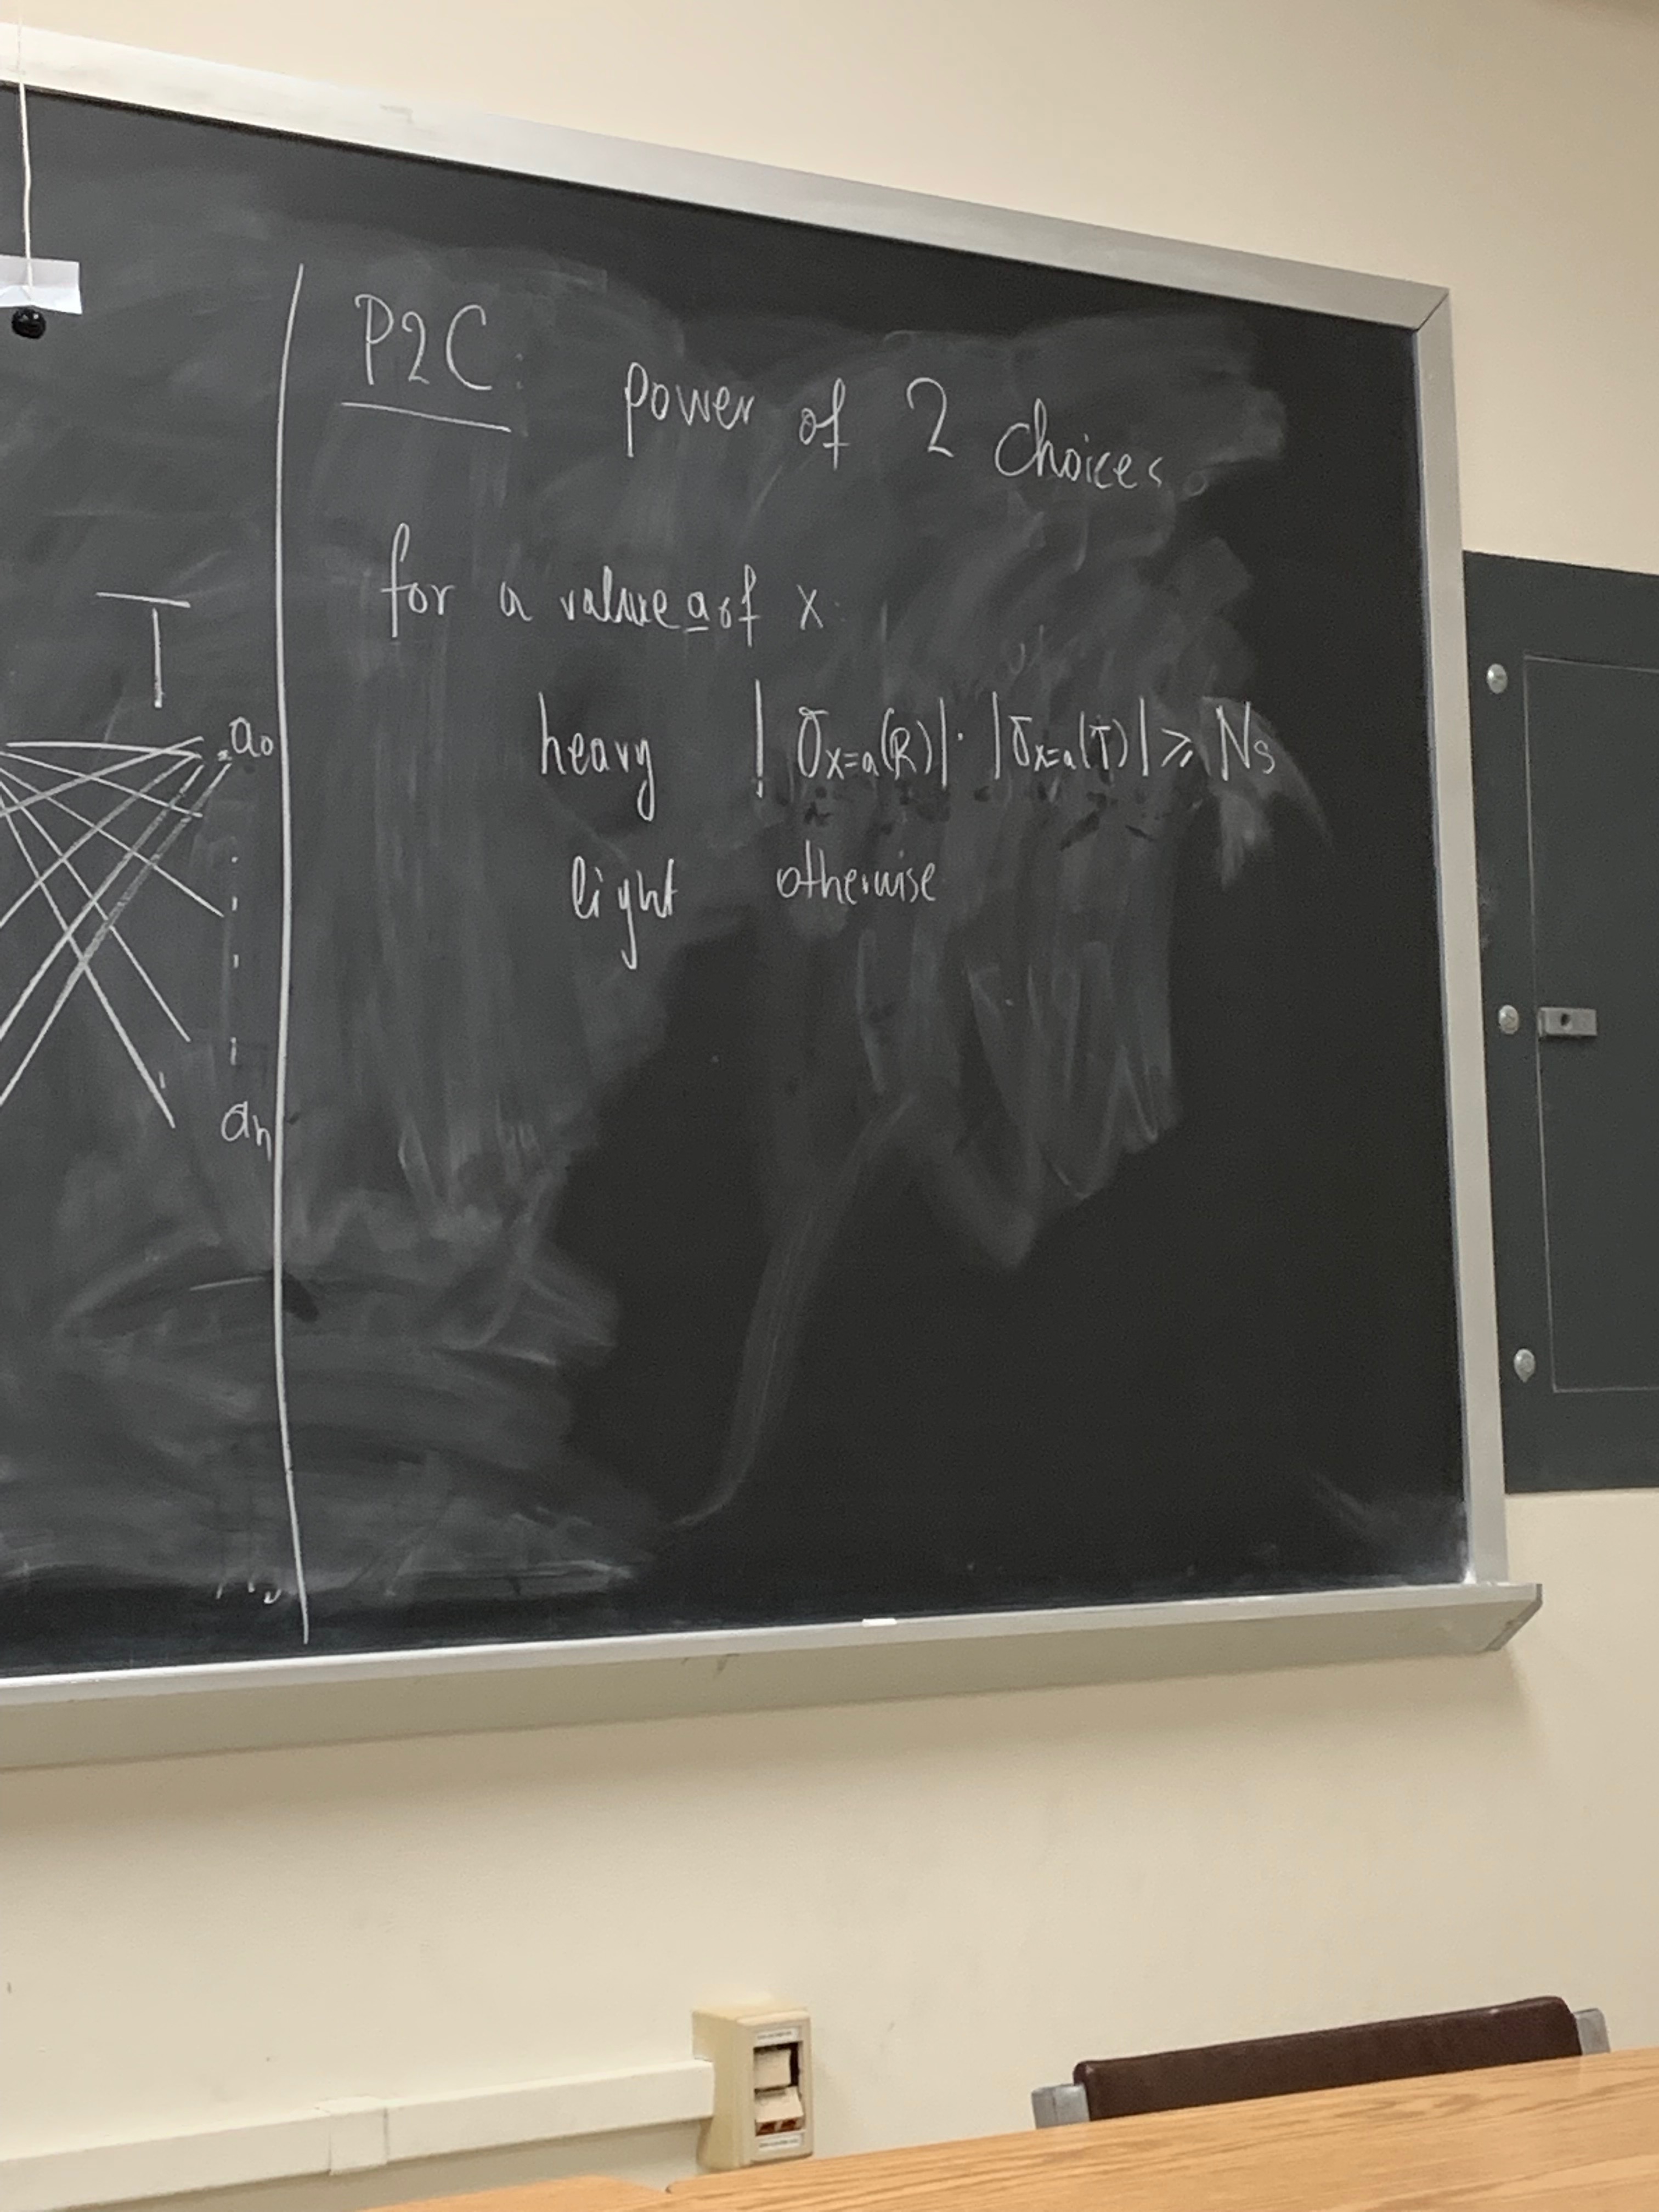 P2C: power of 2 choices
for a value a of x:
heavy |σx=a(R)|·|σx=a(T)| ⩾ Ns
light otherwise
T
a0
an